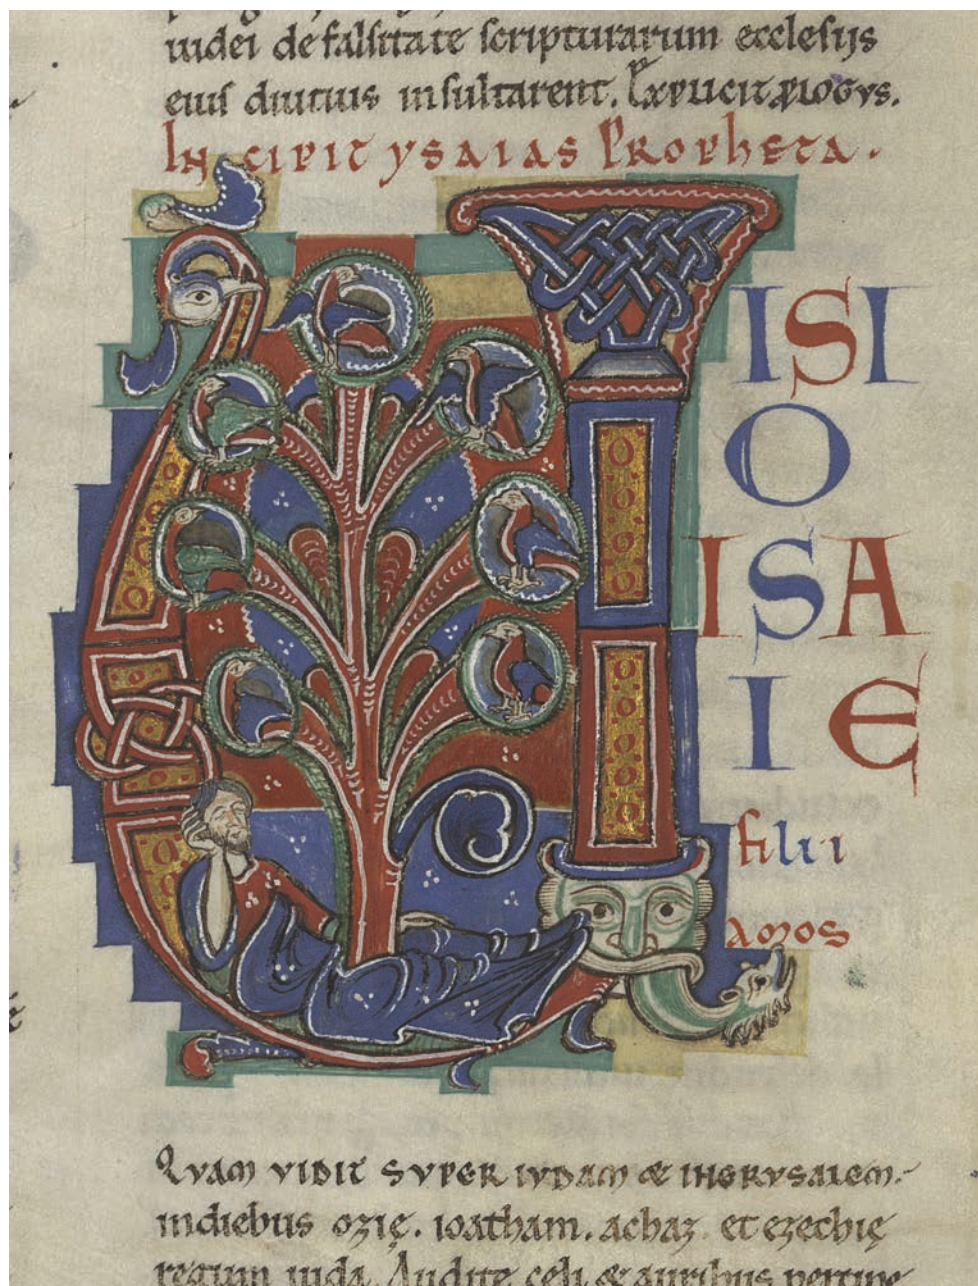 iudei de falsitate scripturarum ecclesijs
eius diutius insultarent. Explicit plogvs.
Incipit ysaias Propheta.
ISI
O
ISAIE
filii
amos
Qvam vidit svper ivdam & iherusalem.
indiebus ozię. ioatham. achaz et ezechię
regum iuda. Audite celi & auribus